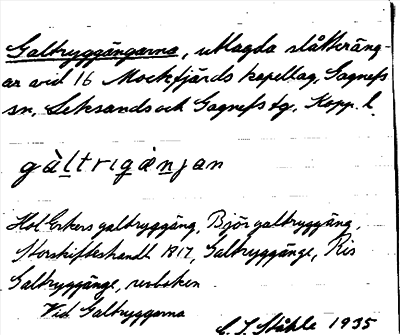 Galtryggängarna, utlagda slåtteräng-
ar vid 16 Mockfjärds kapellag, Gagnefs
sn, Leksands och Gagnefs tg. Kopp. l.
gàltrigæ̀njan
Hol Erkers galtryggäng, Björ galtryggäng,
Storskifteshandl 1817, Galtryggänge, Ris
Galtryggänge, renboken
Vid Galtryggarna
C. I. Ståhle 1935